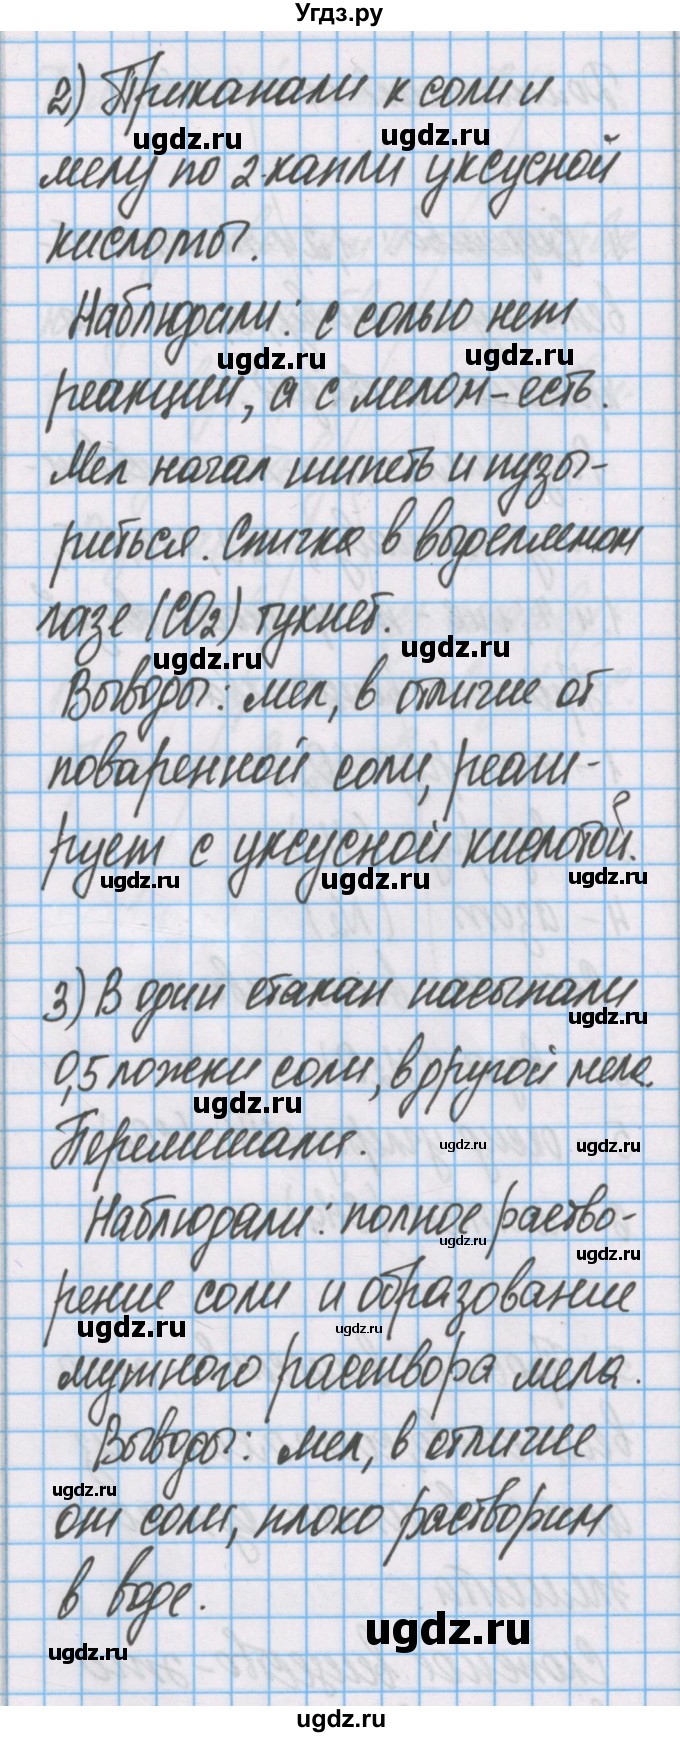 Угдз.ру
2) Прикапали к соли и
ugdz.ru ugdz.ru
мелу по 2 капли уксусной
кислоты.
Наблюдали: с солью нет
ugdz.ru ugdz.ru
реакции, а с мелом - есть.
Мел начал шипеть и пузы-
риться. Спичка в выделенном
газе (CO2) тухнет.
ugdz.ru ugdz.ru
Выводы: мел, в отличие от
поваренной соли, реаги-
рует с уксусной кислотой.
ugdz.ru ugdz.ru ugdz.ru
3) В один стакан насыпали
ugdz.ru
0,5 ложки соли, в другой мела.
ugdz.ru
Перемешали.
ugdz.ru ugdz.ru
Наблюдали: полное раство-
ugdz.ru ugdz.ru
рение соли и образование
ugdz.ru ugdz.ru
мутного раствора мела.
Выводы: мел, в отличие
ugdz.ru
от соли, плохо растворим
в воде.
ugdz.ru
ugdz.ru
ugdz.ru